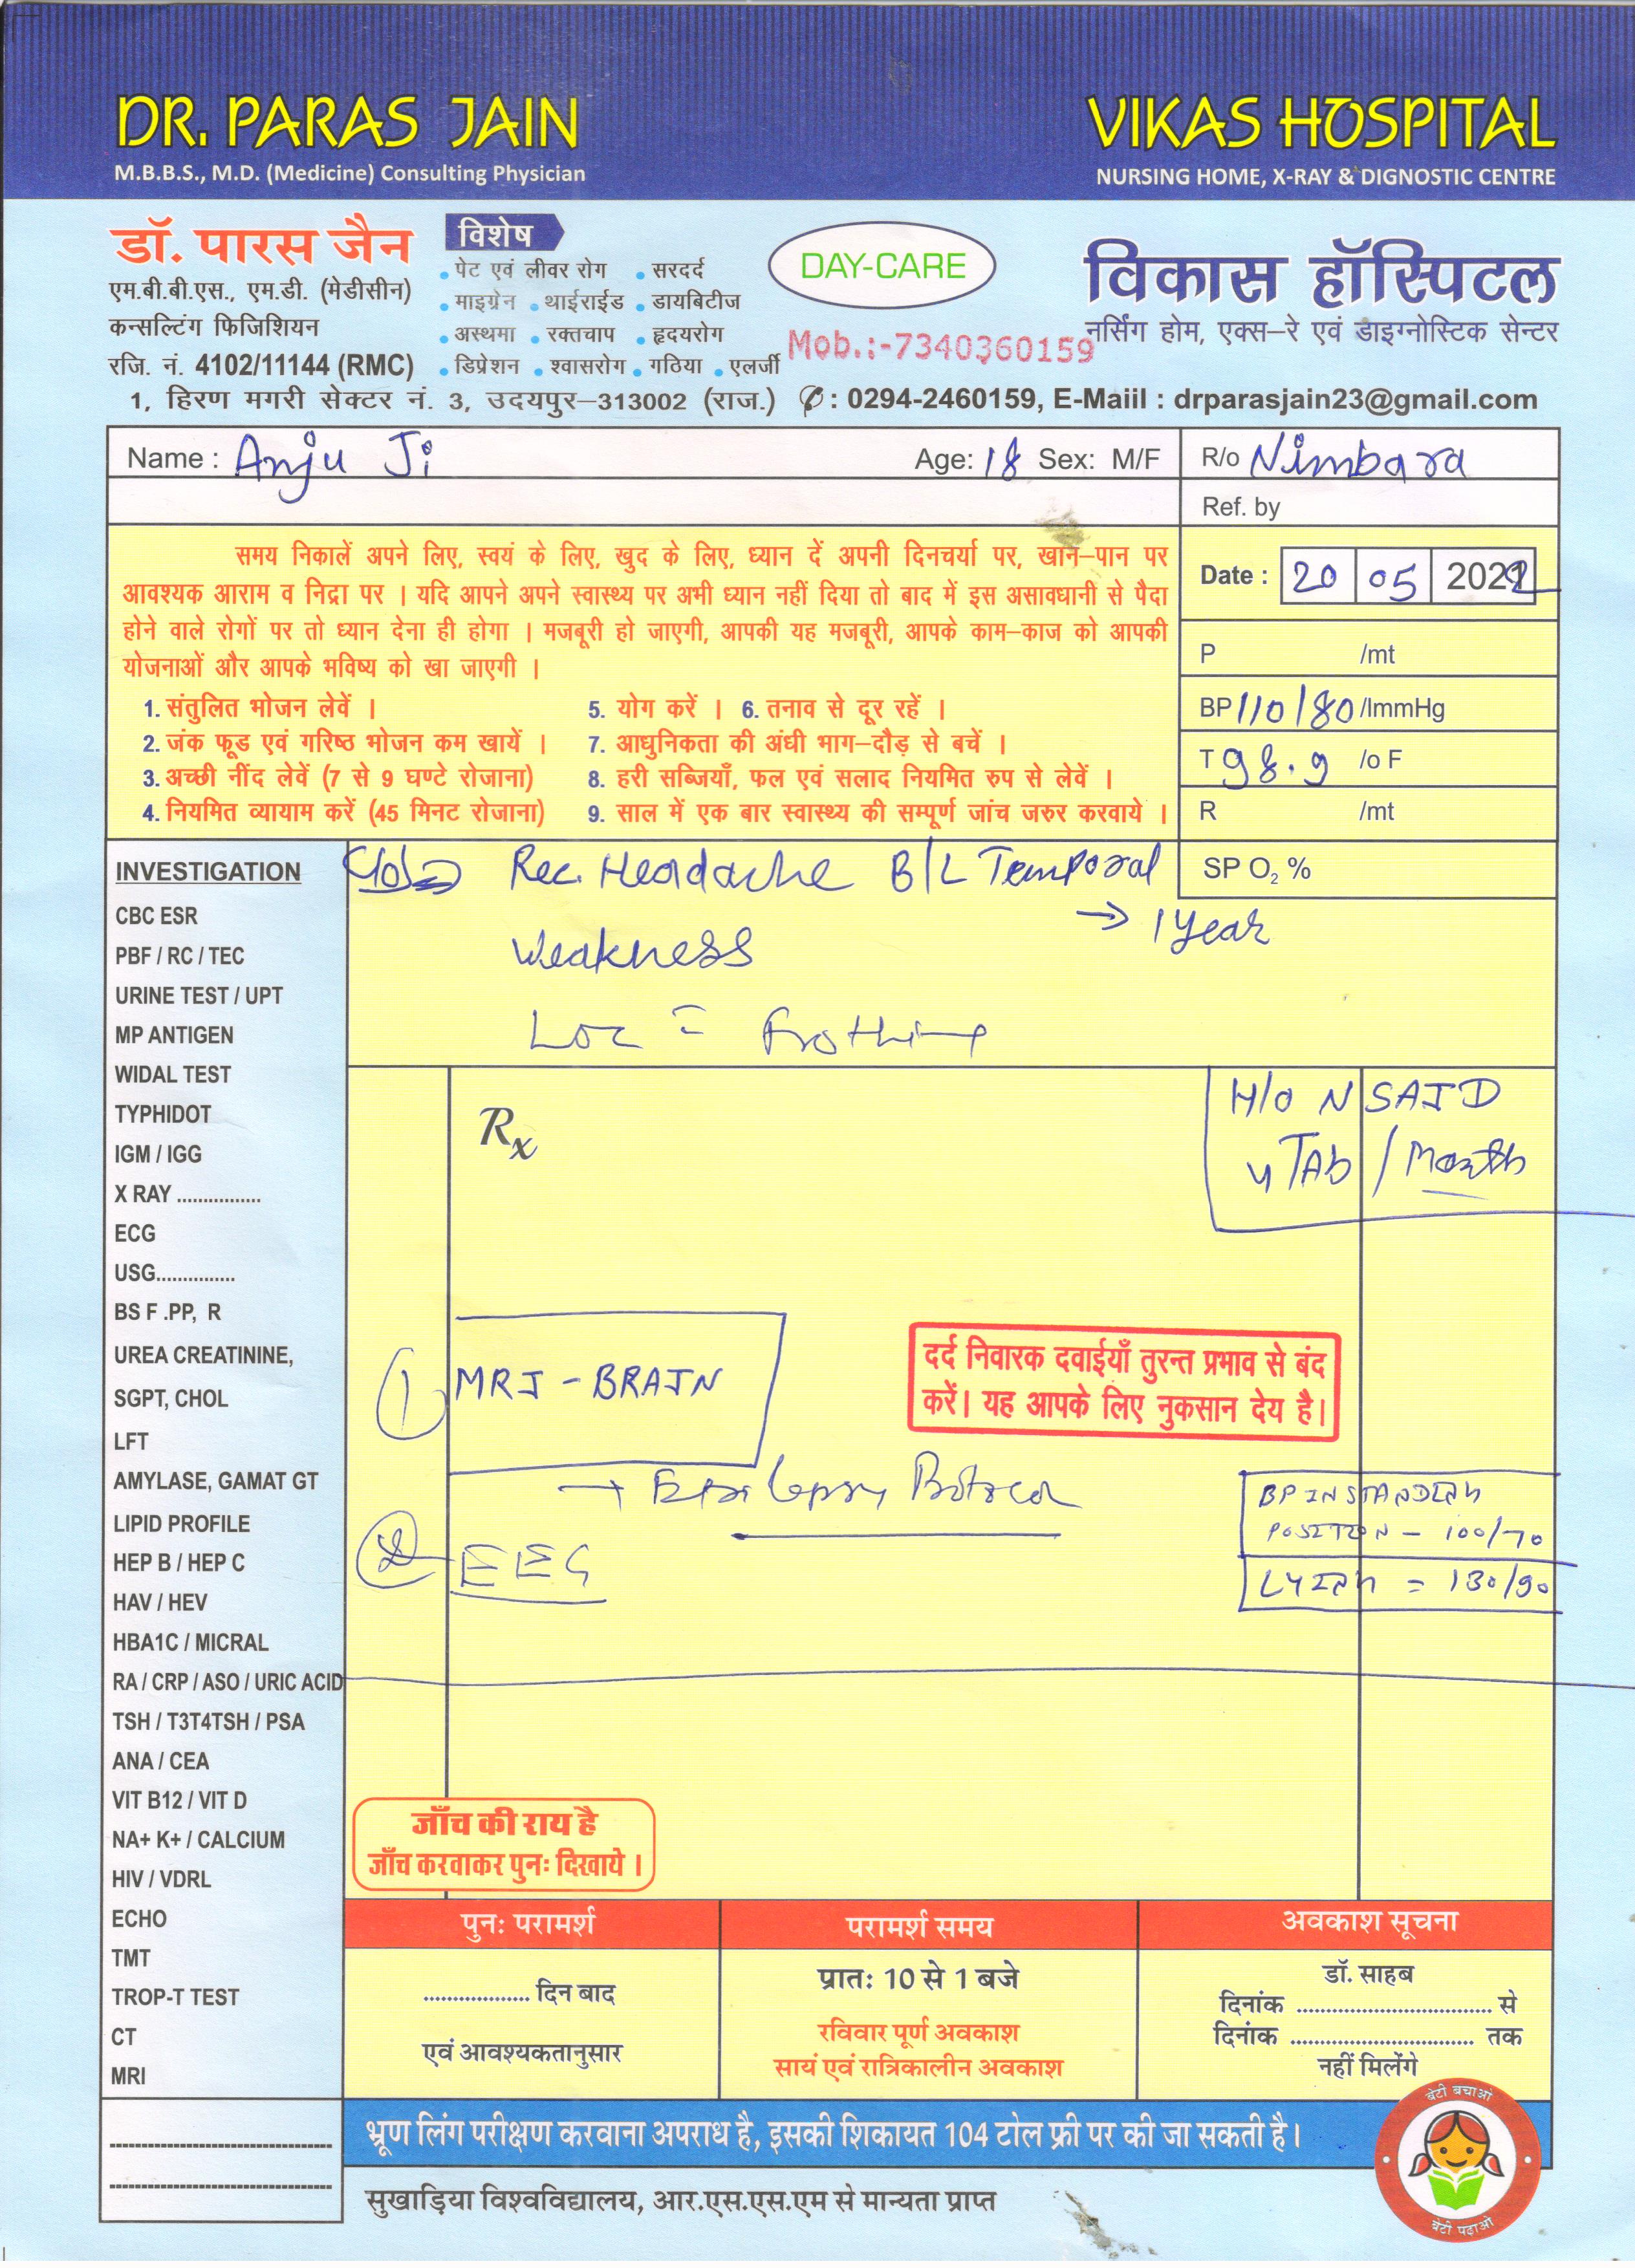 DR. PARAS JAIN
M.B.B.S., M.D. (Medicine) Consulting Physician
VIKAS HOSPITAL
NURSING HOME, X-RAY & DIGNOSTIC CENTRE
डॉ. पारस जैन
एम.बी.बी.एस., एम.डी. (मेडीसीन)
कन्सल्टिंग फिजिशियन
रजि. नं. 4102/11144 (RMC)
विशेष
• पेट एवं लीवर रोग • सरदर्द
• माइग्रेन • थाईराईड • डायबिटीज
• अस्थमा • रक्तचाप • हृदयरोग
• डिप्रेशन • श्वासरोग • गठिया • एलर्जी
DAY-CARE
Mob.:-7340360159
विकास हॉस्पिटल
नर्सिंग होम, एक्स–रे एवं डाइग्नोस्टिक सेन्टर
1, हिरण मगरी सेक्टर नं. 3, उदयपुर–313002 (राज.) ✆: 0294-2460159, E-Maiil : drparasjain23@gmail.com
Name : Anju Ji Age: 18 Sex: M/F R/o Nimbara
Ref. by
समय निकालें अपने लिए, स्वयं के लिए, खुद के लिए, ध्यान दें अपनी दिनचर्या पर, खान–पान पर
आवश्यक आराम व निद्रा पर । यदि आपने अपने स्वास्थ्य पर अभी ध्यान नहीं दिया तो बाद में इस असावधानी से पैदा
होने वाले रोगों पर तो ध्यान देना ही होगा । मजबूरी हो जाएगी, आपकी यह मजबूरी, आपके काम–काज को आपकी
योजनाओं और आपके भविष्य को खा जाएगी ।
1. संतुलित भोजन लेवें ।
2. जंक फूड एवं गरिष्ठ भोजन कम खायें ।
3. अच्छी नींद लेवें (7 से 9 घण्टे रोजाना)
4. नियमित व्यायाम करें (45 मिनट रोजाना)
5. योग करें । 6. तनाव से दूर रहें ।
7. आधुनिकता की अंधी भाग–दौड़ से बचें ।
8. हरी सब्जियाँ, फल एवं सलाद नियमित रुप से लेवें ।
9. साल में एक बार स्वास्थ्य की सम्पूर्ण जांच जरुर करवाये ।
Date : 20 05 2022
P /mt
BP 110/80 /ImmHg
T 98.9 /o F
R /mt
SP O₂ %
INVESTIGATION
CBC ESR
PBF / RC / TEC
URINE TEST / UPT
MP ANTIGEN
WIDAL TEST
TYPHIDOT
IGM / IGG
X RAY ................
ECG
USG...............
BS F .PP, R
UREA CREATININE,
SGPT, CHOL
LFT
AMYLASE, GAMAT GT
LIPID PROFILE
HEP B / HEP C
HAV / HEV
HBA1C / MICRAL
RA / CRP / ASO / URIC ACID
TSH / T3T4TSH / PSA
ANA / CEA
VIT B12 / VIT D
NA+ K+ / CALCIUM
HIV / VDRL
ECHO
TMT
TROP-T TEST
CT
MRI
C/o → Rec. Headache B/L Temporal
→ 1 year
Weakness
LOC = Frothing
Rx
H/O NSAID
4 TAb / Month
① MRI - BRAIN
→ Epilepsy Protocol
② EEG
दर्द निवारक दवाईयाँ तुरन्त प्रभाव से बंद
करें। यह आपके लिए नुकसान देय है।
BP IN STANDING
POSITION - 100/70
LYING = 130/90
जाँच की राय है
जाँच करवाकर पुनः दिखाये ।
पुनः परामर्श
.................. दिन बाद
एवं आवश्यकतानुसार
परामर्श समय
प्रातः 10 से 1 बजे
रविवार पूर्ण अवकाश
सायं एवं रात्रिकालीन अवकाश
अवकाश सूचना
डॉ. साहब
दिनांक .................................. से
दिनांक ................................ तक
नहीं मिलेंगे
भ्रूण लिंग परीक्षण करवाना अपराध है, इसकी शिकायत 104 टोल फ्री पर की जा सकती है।
बेटी बचाओ
बेटी पढ़ाओ
सुखाड़िया विश्वविद्यालय, आर.एस.एस.एम से मान्यता प्राप्त